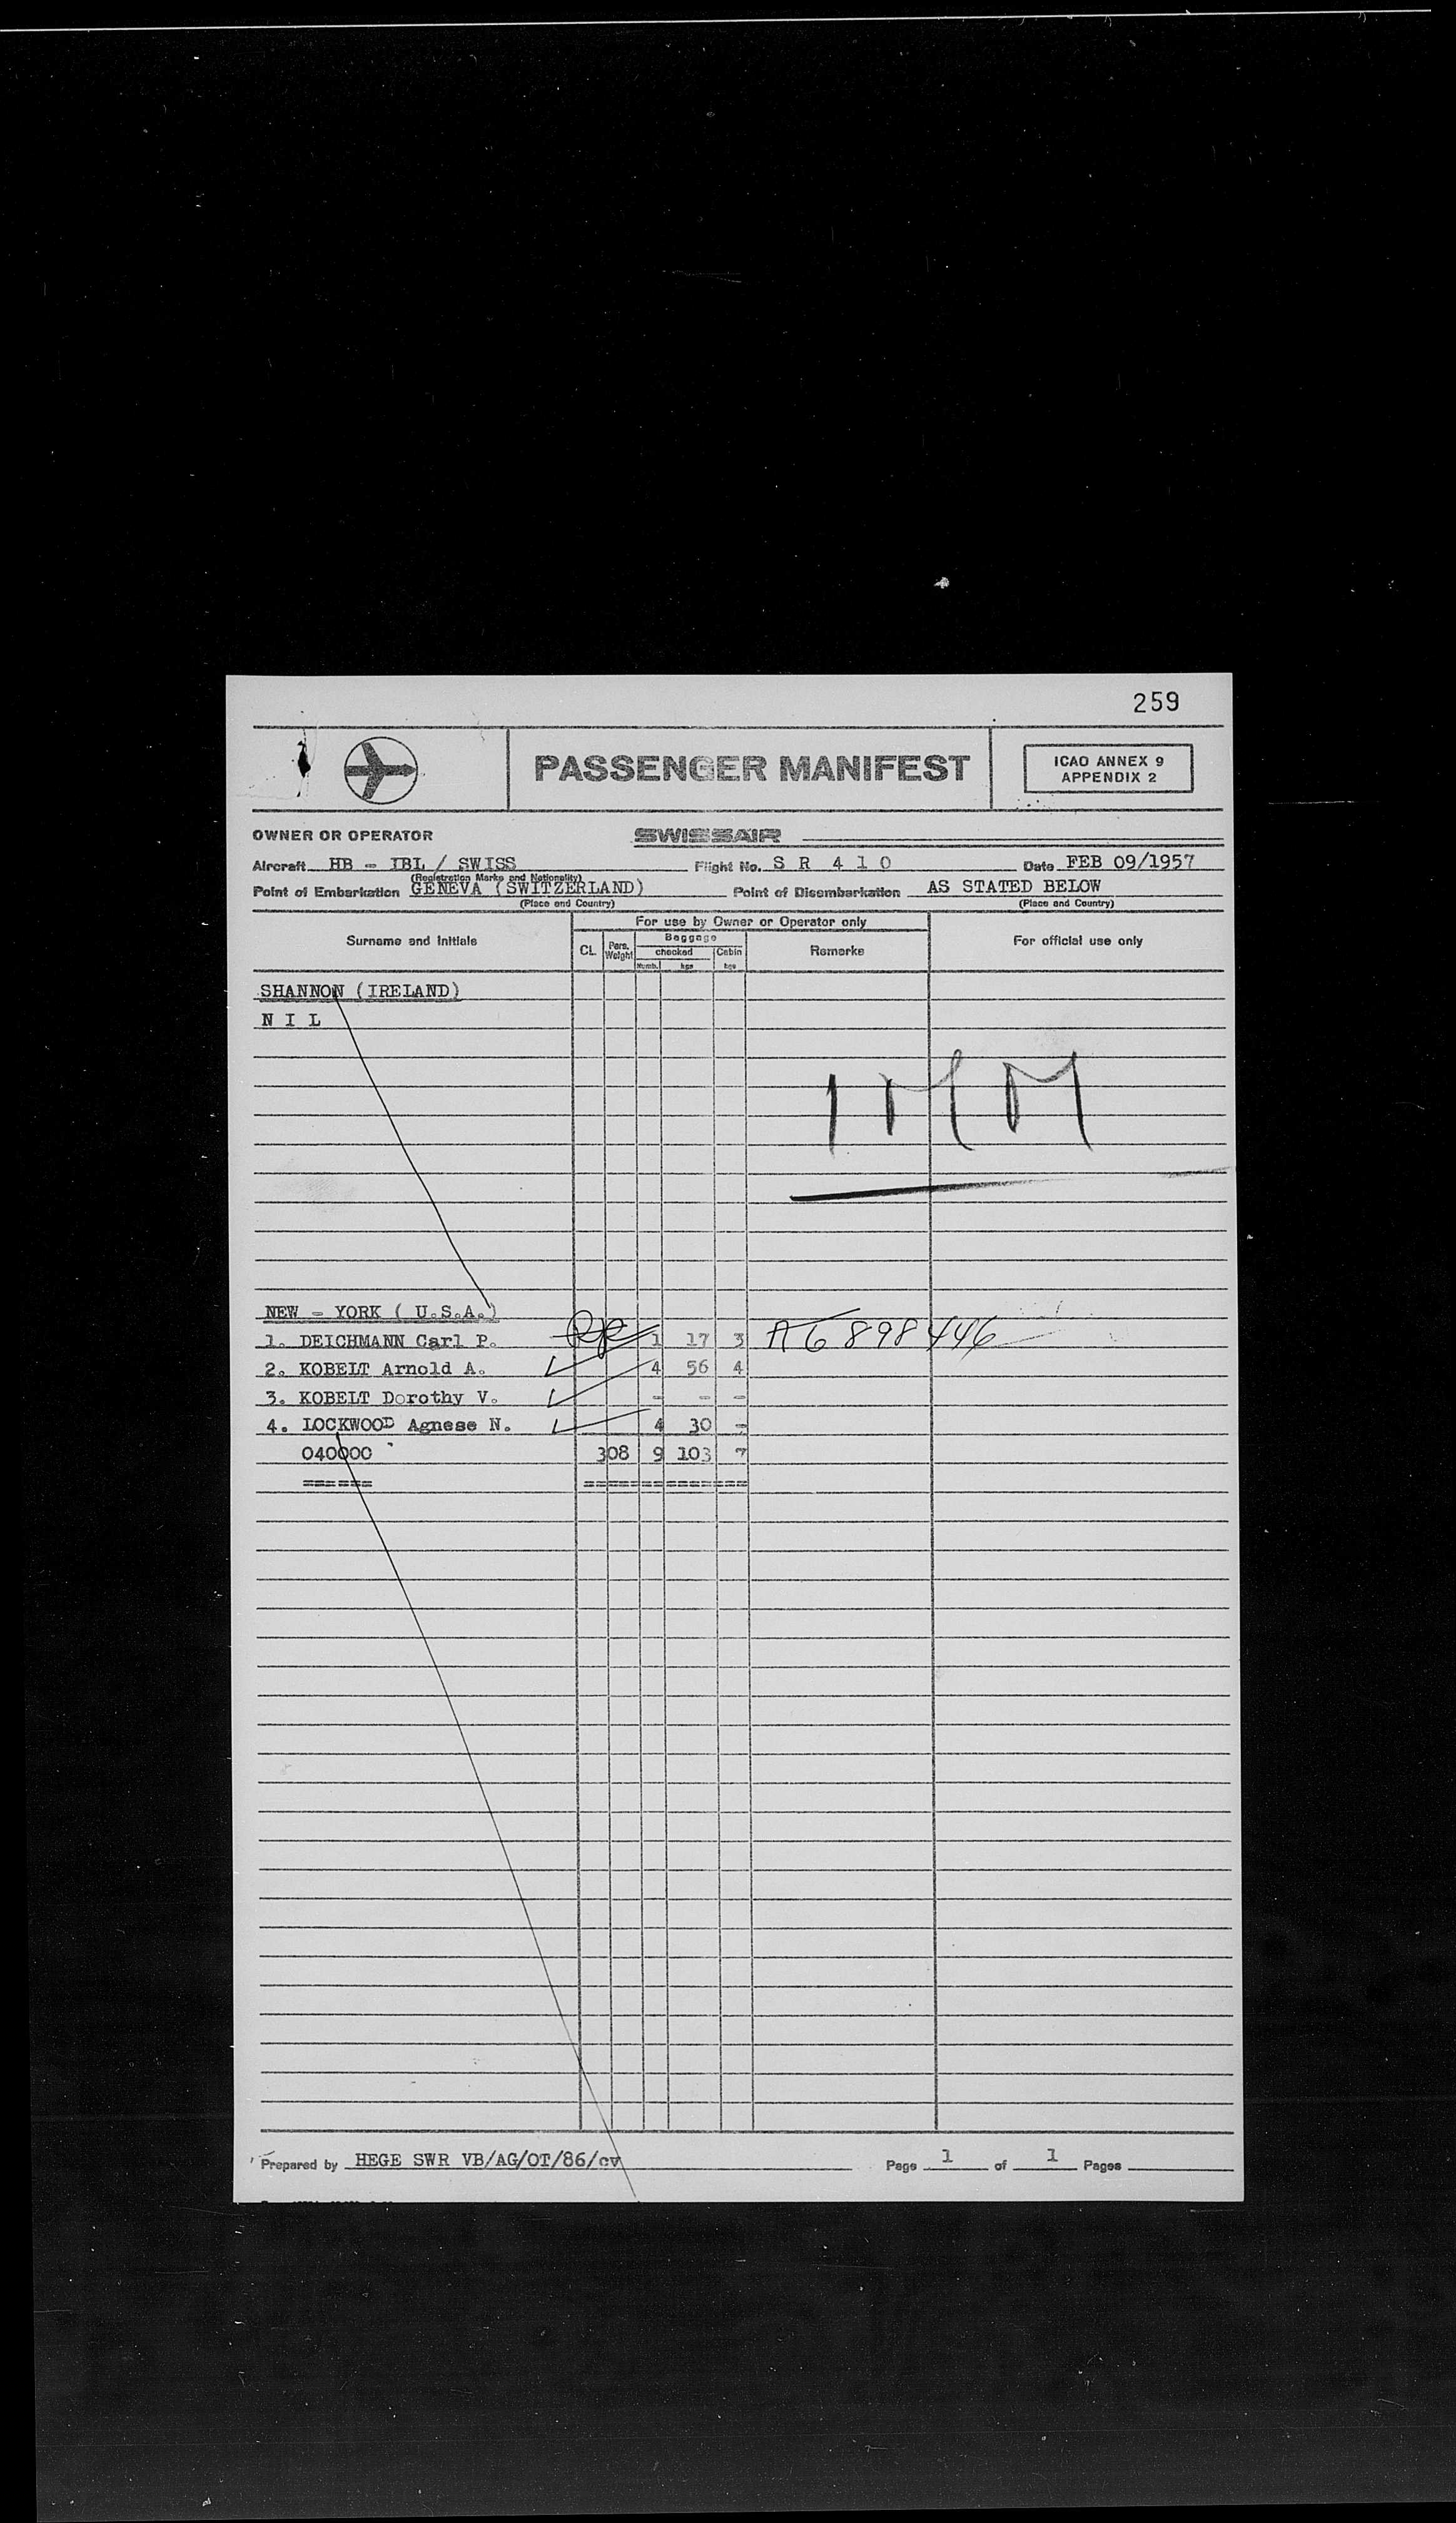 259
PASSENGER MANIFEST
ICAO ANNEX 9
APPENDIX 2
OWNER OR OPERATOR SWISSAIR
Aircraft HB - IBL / SWISS Flight No. S R 4 1 0 Date FEB 09/1957
(Registration Marks and Nationality)
Point of Embarkation GENEVA (SWITZERLAND) Point of Disembarkation AS STATED BELOW
(Place and Country) (Place and Country)
For use by Owner or Operator only
Surname and Initials CL. Pers. Weight Baggage checked Numb. kgs Cabin kgs Remarks For official use only
SHANNON (IRELAND)
N I L
IMM
NEW - YORK ( U.S.A.)
1. DEICHMANN Carl P. 1 17 3 A6 898 446
2. KOBELT Arnold A. 4 56 4
3. KOBELT Dorothy V. - - -
4. LOCKWOOD Agnese N. 4 30 -
040000 308 9 103 7
====== ===============
Prepared by HEGE SWR VB/AG/OT/86/cv Page 1 of 1 Pages